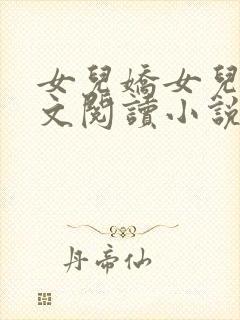 女兒嬌女兒
文閱讀小說
丹帝仙